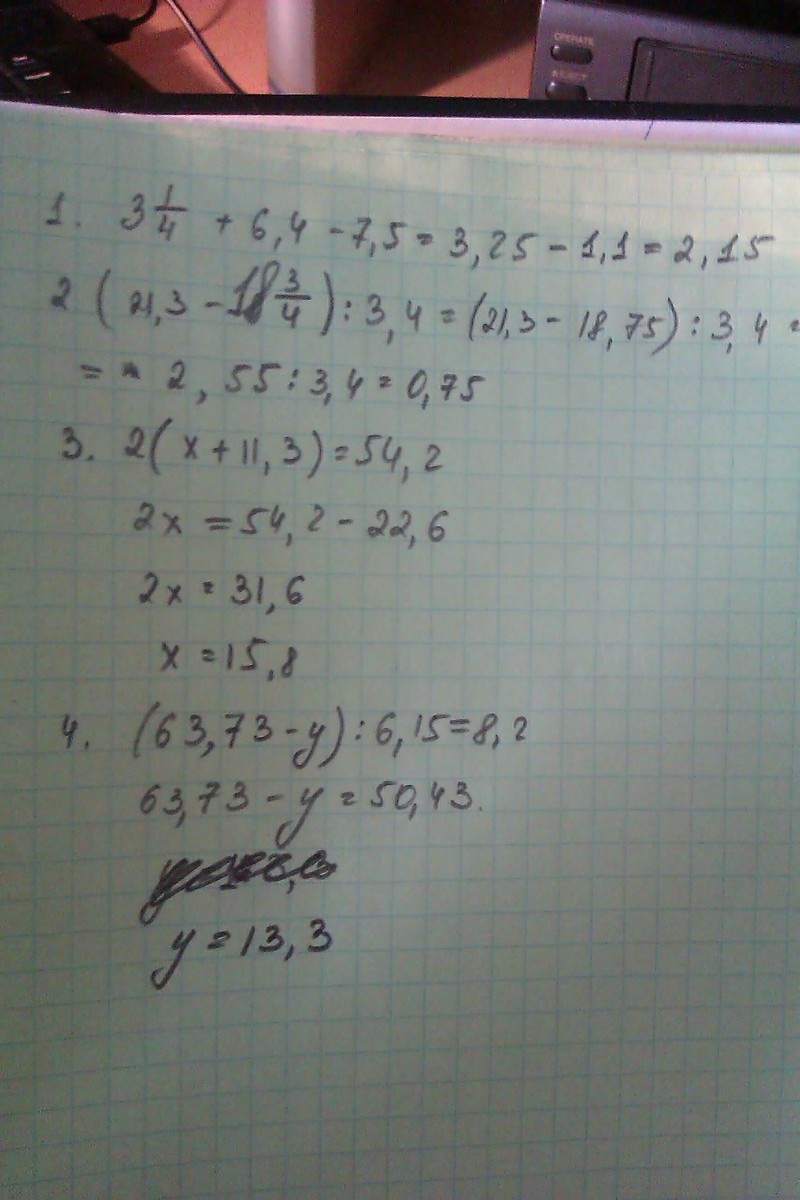 OPERATE
EJECT
1. 3 1/4 + 6,4 - 7,5 = 3,25 - 1,1 = 2,15
2 ( 21,3 - 18 3/4 ) : 3,4 = (21,3 - 18,75) : 3,4 =
= 2,55 : 3,4 = 0,75
3. 2( x + 11,3) = 54,2
2x = 54,2 - 22,6
2x = 31,6
x = 15,8
4. (63,73 - y) : 6,15 = 8,2
63,73 - y = 50,43.
y = 13,3